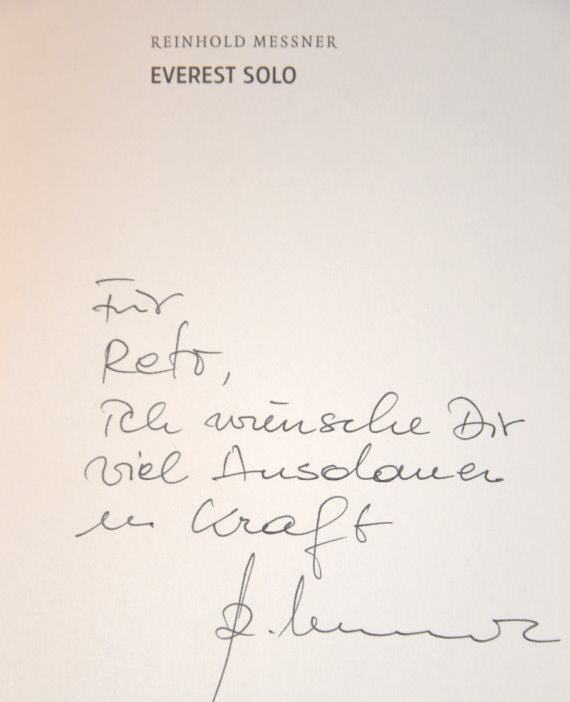 REINHOLD MESSNER
EVEREST SOLO
Für
Reto,
ich wünsche Dir
viel Ausdauer
u. Kraft
R. Messner